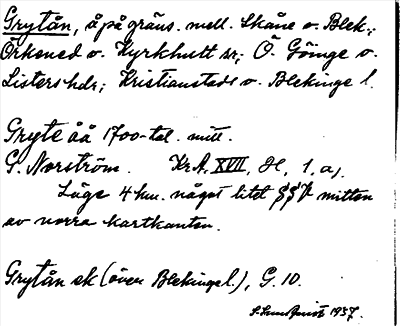 Grytån, å på gräns. mell. Skåne o. Blek.;
Örkened o. Kyrkhult sn; Ö. Göinge o.
Listers hdr; Kristianstads o. Blekinge l.
Gryte åå 1700-tal. mitt.
G. Norström. Kr.A, XVII, H, 1, a).
Läge 4 km. något litet SSV mitten
av norra kartkanten.
Grytån ek (även Blekinge l.), G. 10.
1937.